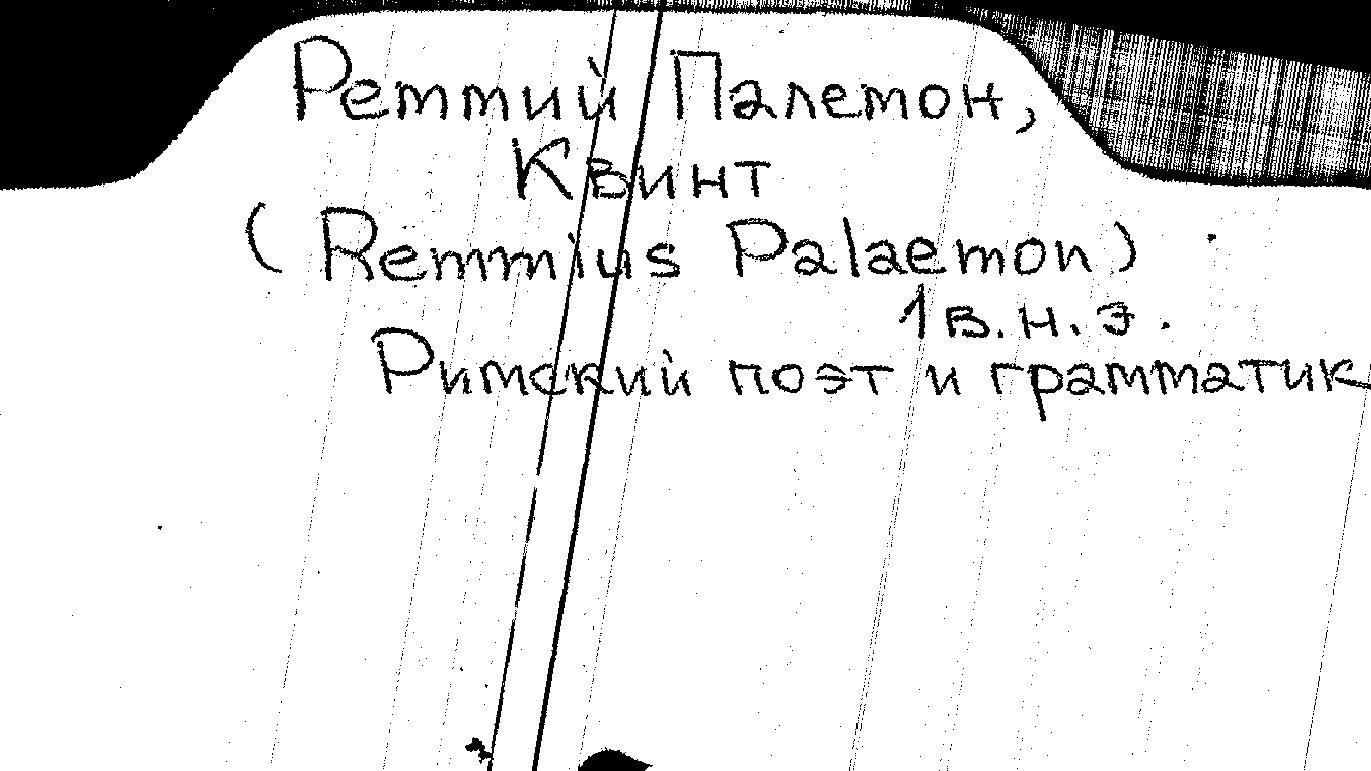 Реммий Палемон,
Квинт
(Remmius Palaemon)
1 в. н. э.
Римский поэт и грамматик